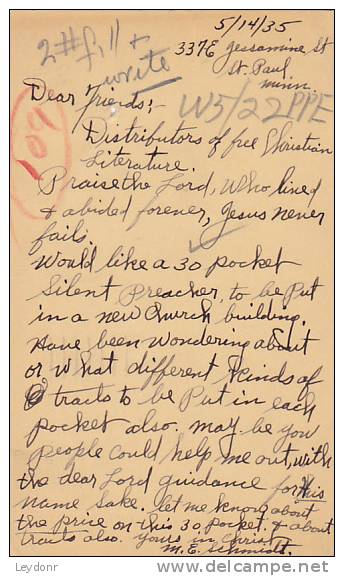 5/14/35
337 E Jessamine St
St. Paul
Minn.
2# fill &
write
W5/22 PPE
Dear Friends:-
Distributors of free Christian
Literature.
Praise the Lord, Who lived
& abided forever, Jesus never
fails.
Would like a 30 pocket
Silent Preacher, to be Put
in a new Church building.
Have been wondering about
or what different Kinds of
tracts to be Put in each
pocket also. may be you
people could help me out, with
the dear Lord guidance for His
name sake. let me know about
the price on this 30 pocket. & about
tracts also. yours in Christ
M. E. Schmidt.
Leydonr
delcampe.net